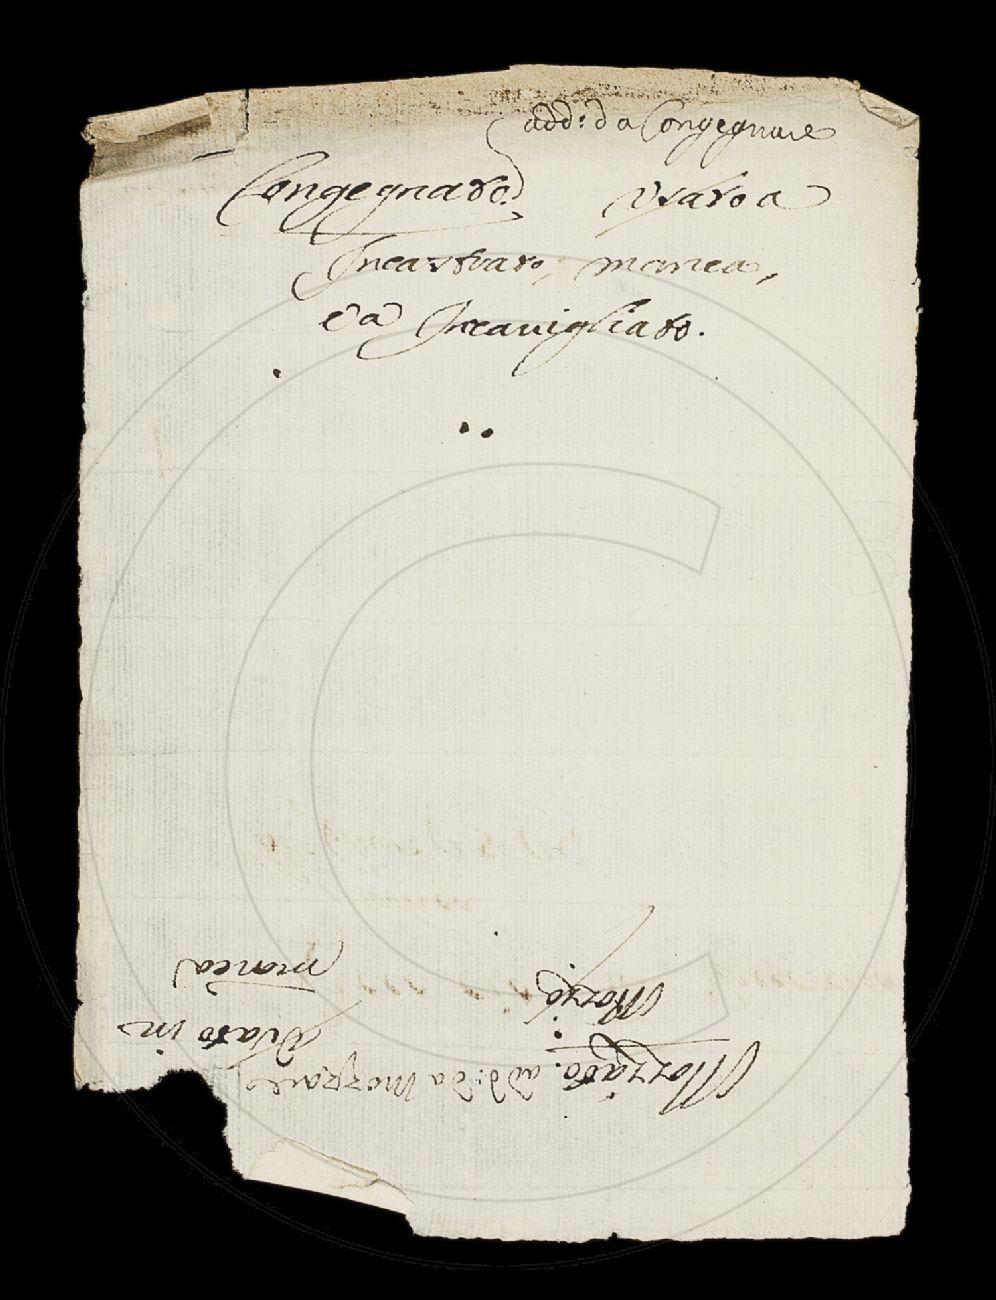 add: da Congegnare
Congegnato. Usato a
Incastrato, manca,
e a Incavigliato.
Mozzato. add: da Mozzare
Mozzo. Usato in
manca